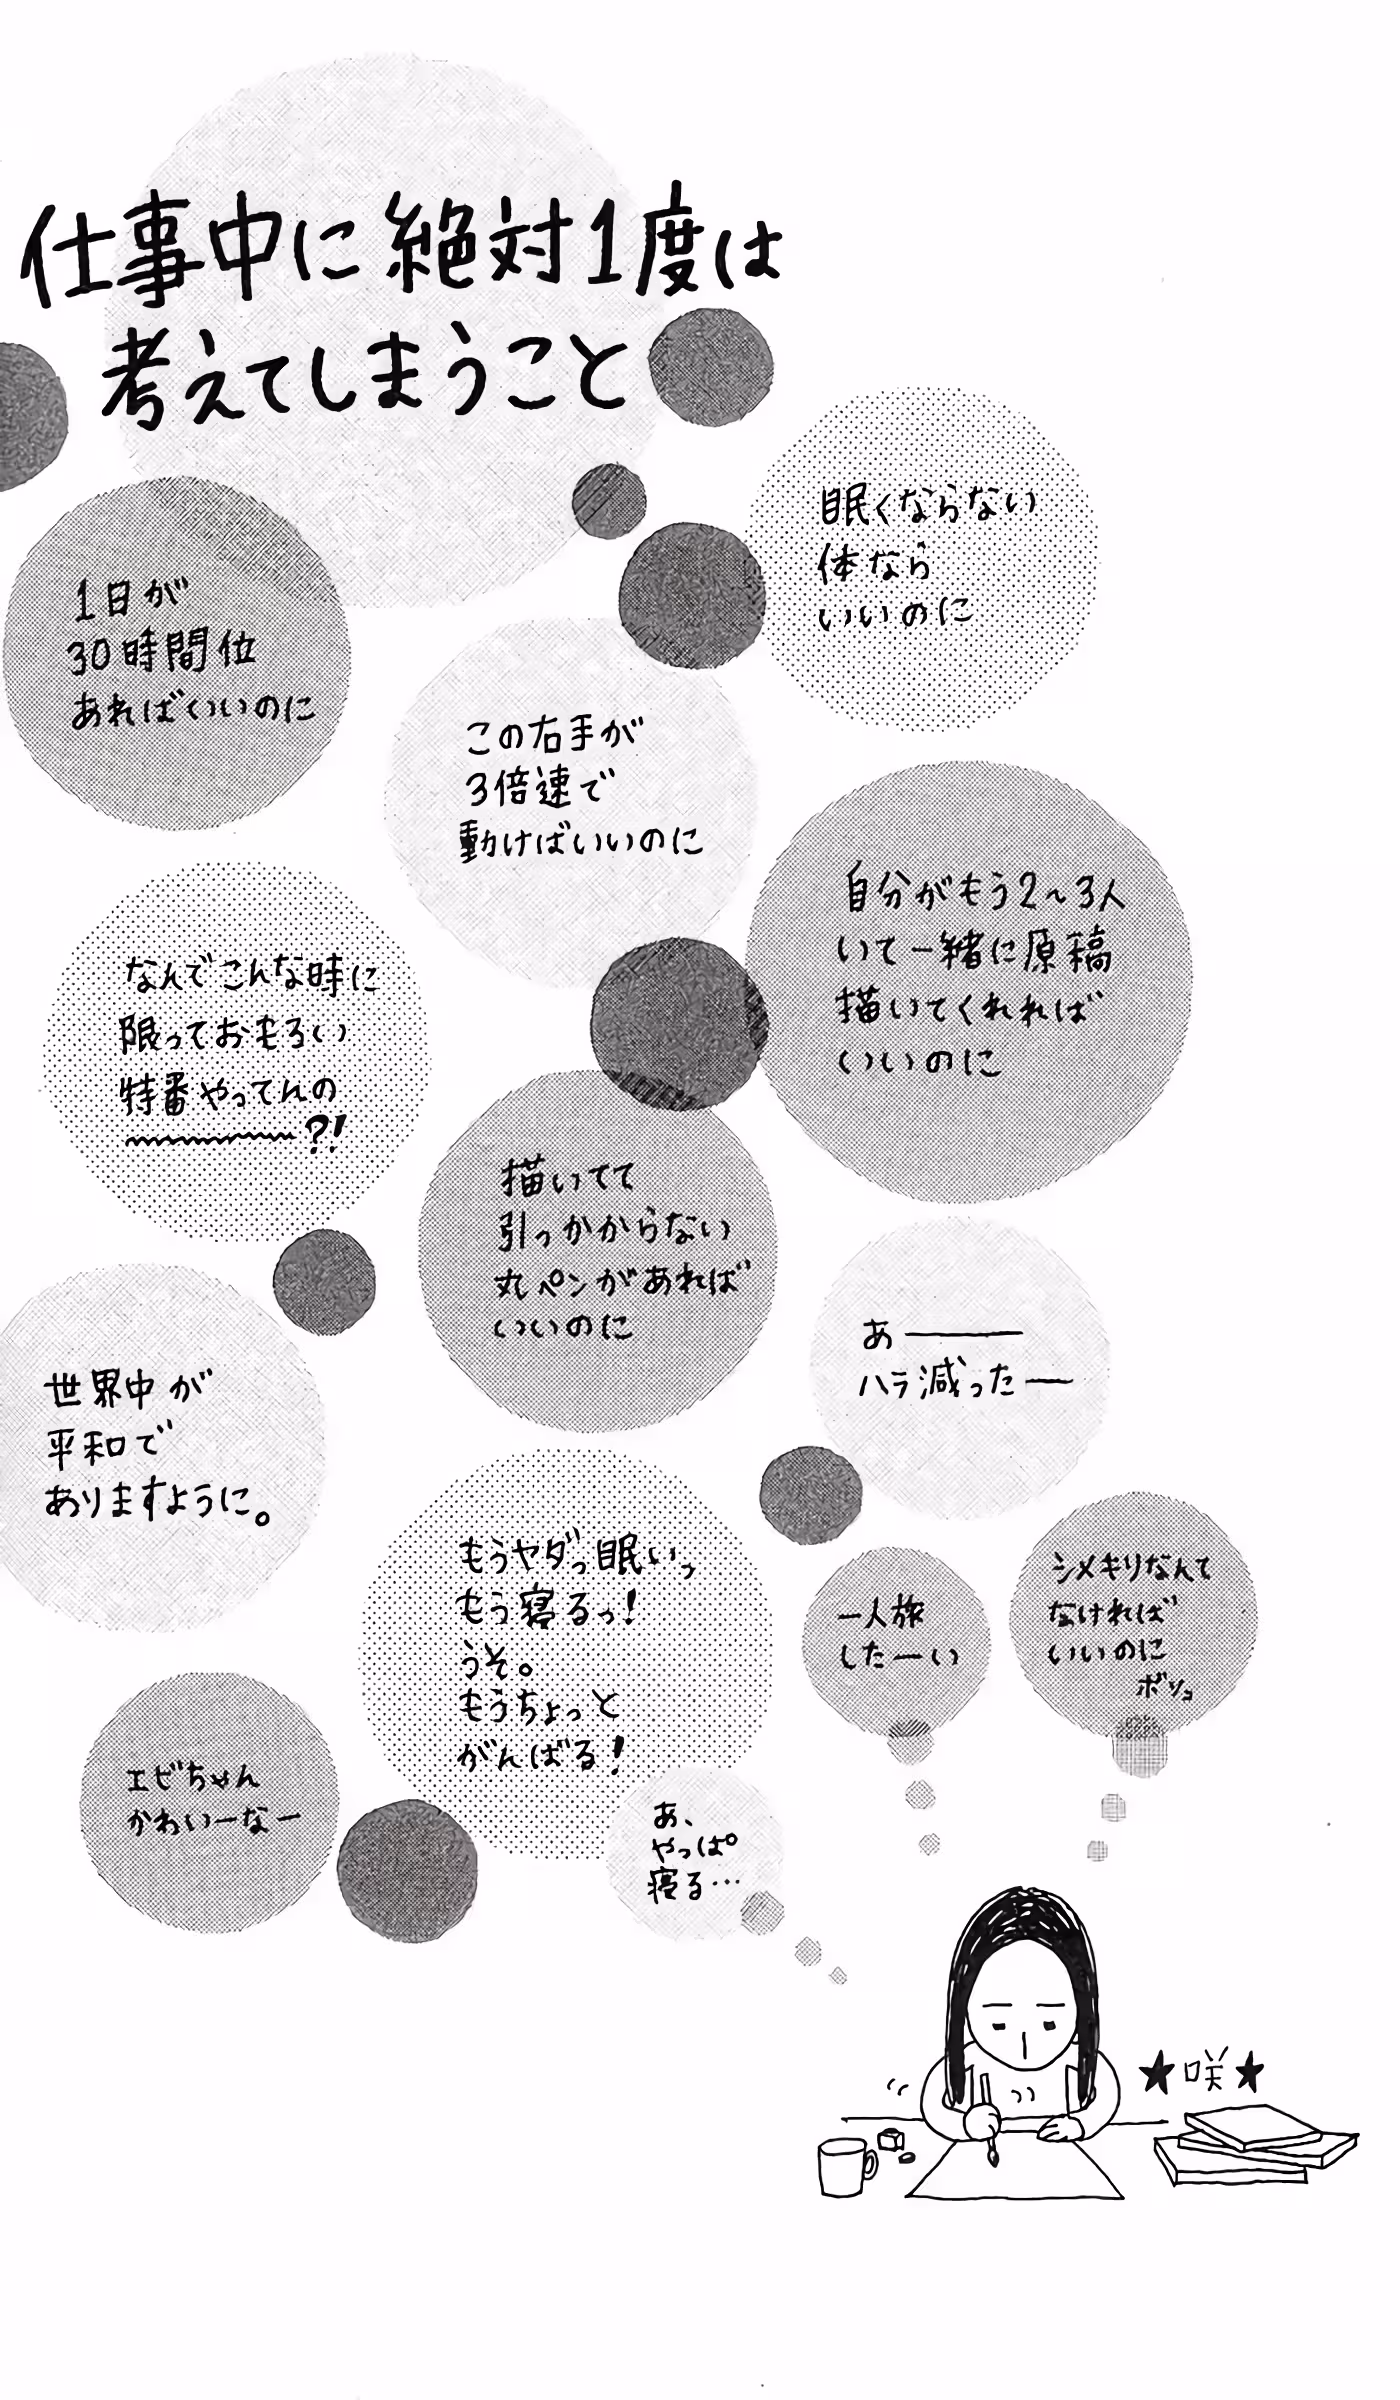 仕事中に絶対1度は
考えてしまうこと
眠くならない
体なら
いいのに
1日が
30時間位
あればいいのに
この右手が
3倍速で
動けばいいのに
自分がもう2~3人
いて一緒に原稿
描いてくれれば
いいのに
なんでこんな時に
限っておもろい
特番やってんの
〰〰〰?!
描いてて
引っかからない
丸ペンがあれば
いいのに
あ———
ハラ減ったー
世界中が
平和で
ありますように。
もうヤダっ眠いっ
もう寝るっ!
うそ。
もうちょっと
がんばる!
一人旅
したーい
シメキリなんて
なければ
いいのに
ボソッ
エビちゃん
かわいーなー
あ、
やっぱ
寝る…
★咲★